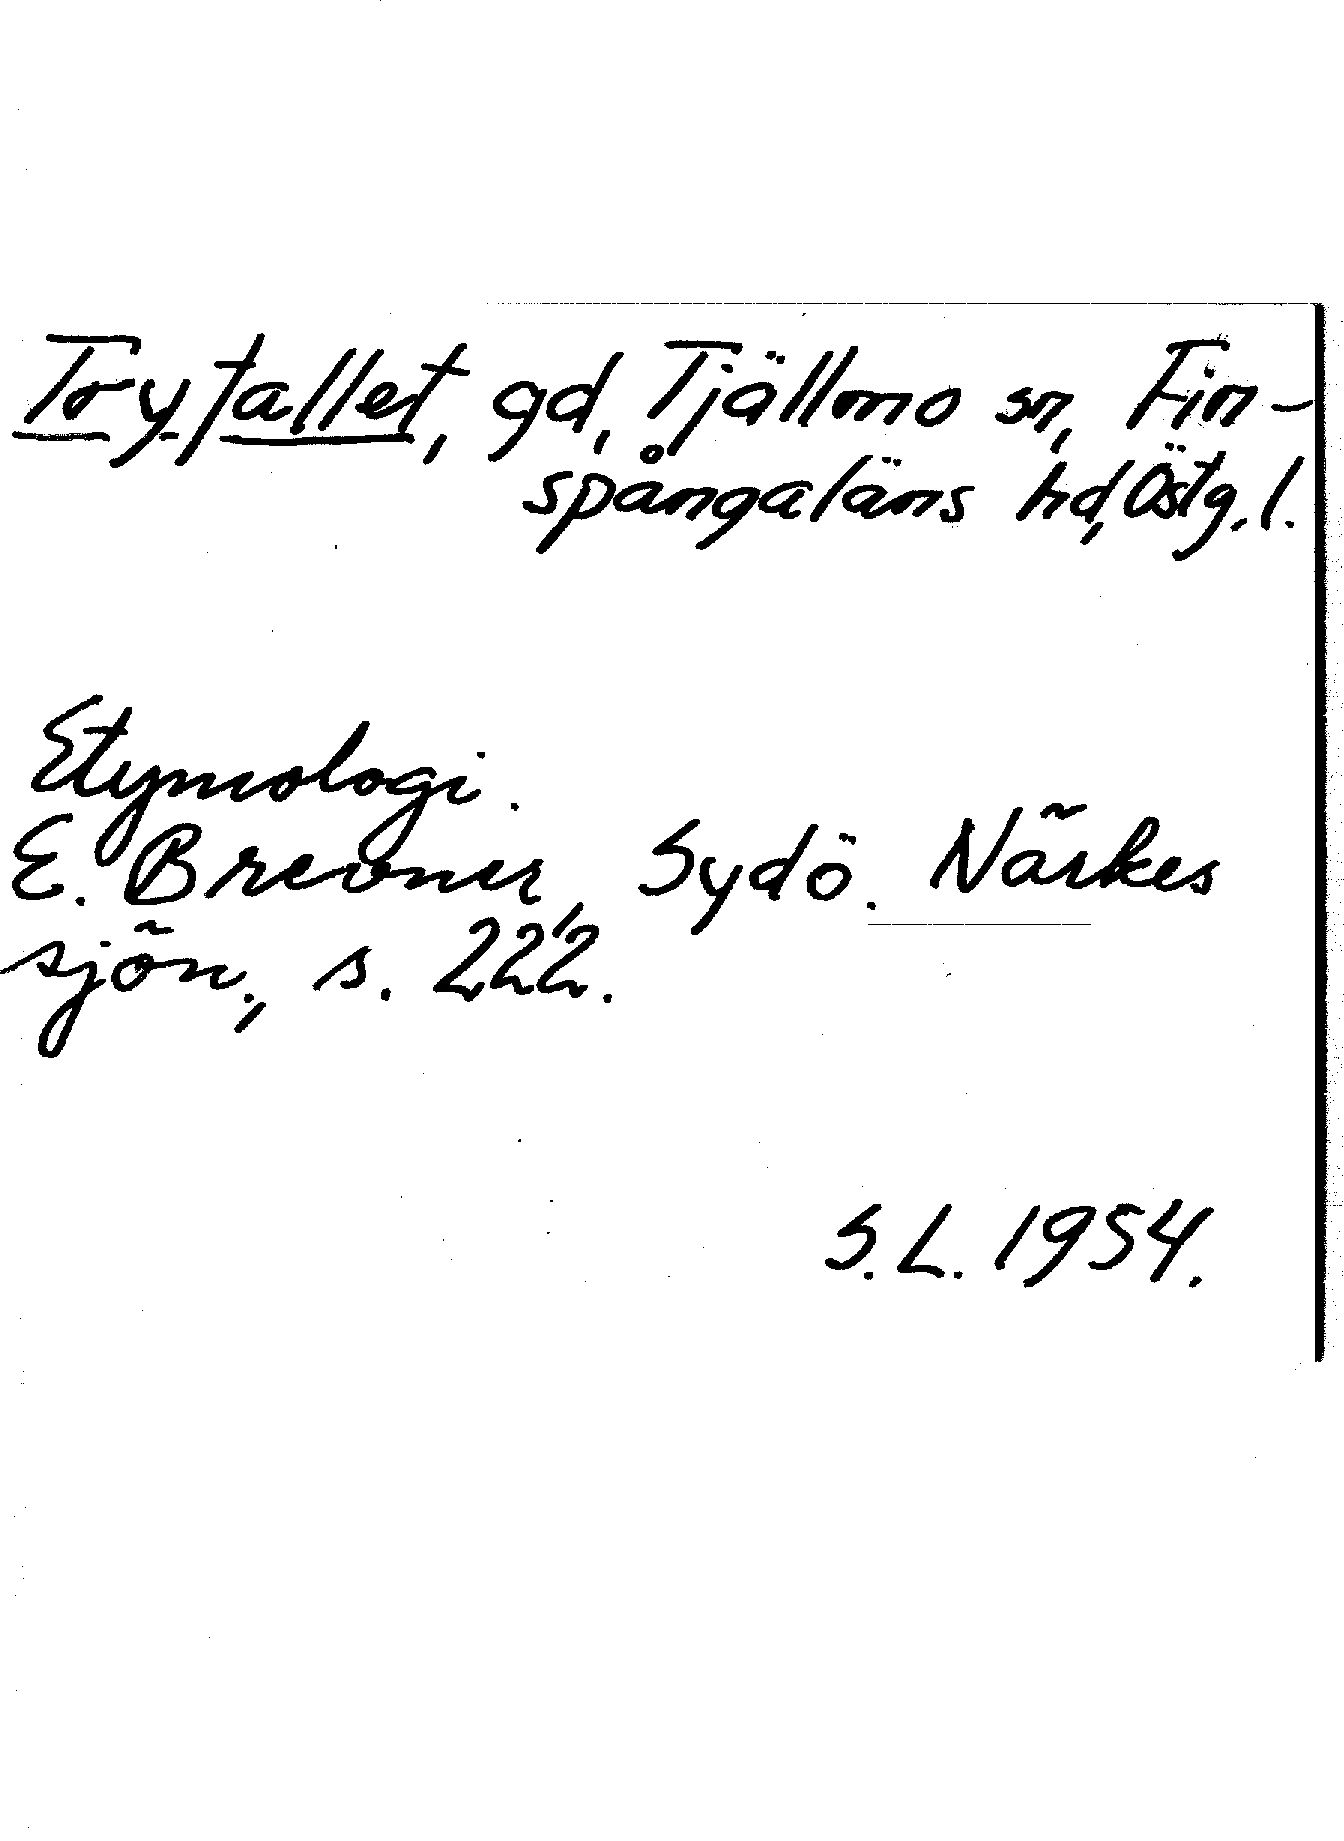 Trytallet, gd, Tjällmo sn, Fin-
spångaläns hd, Östg. l.
Etymologi.
E. Brevner, Sydö. Närkes
sjön., s. 222.
S.L. 1954.